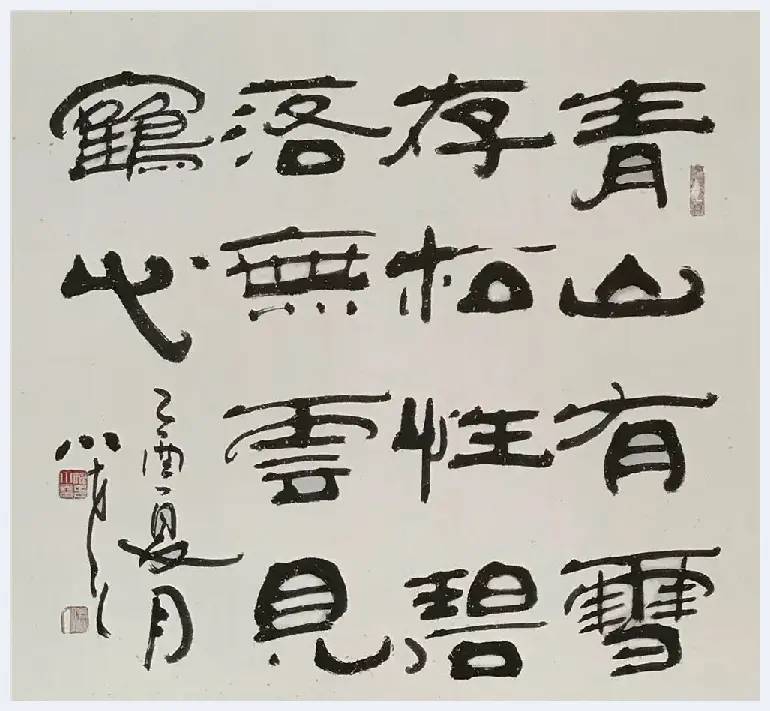 青山有雪
存松性碧
落無雲見
鶴心
乙酉夏月